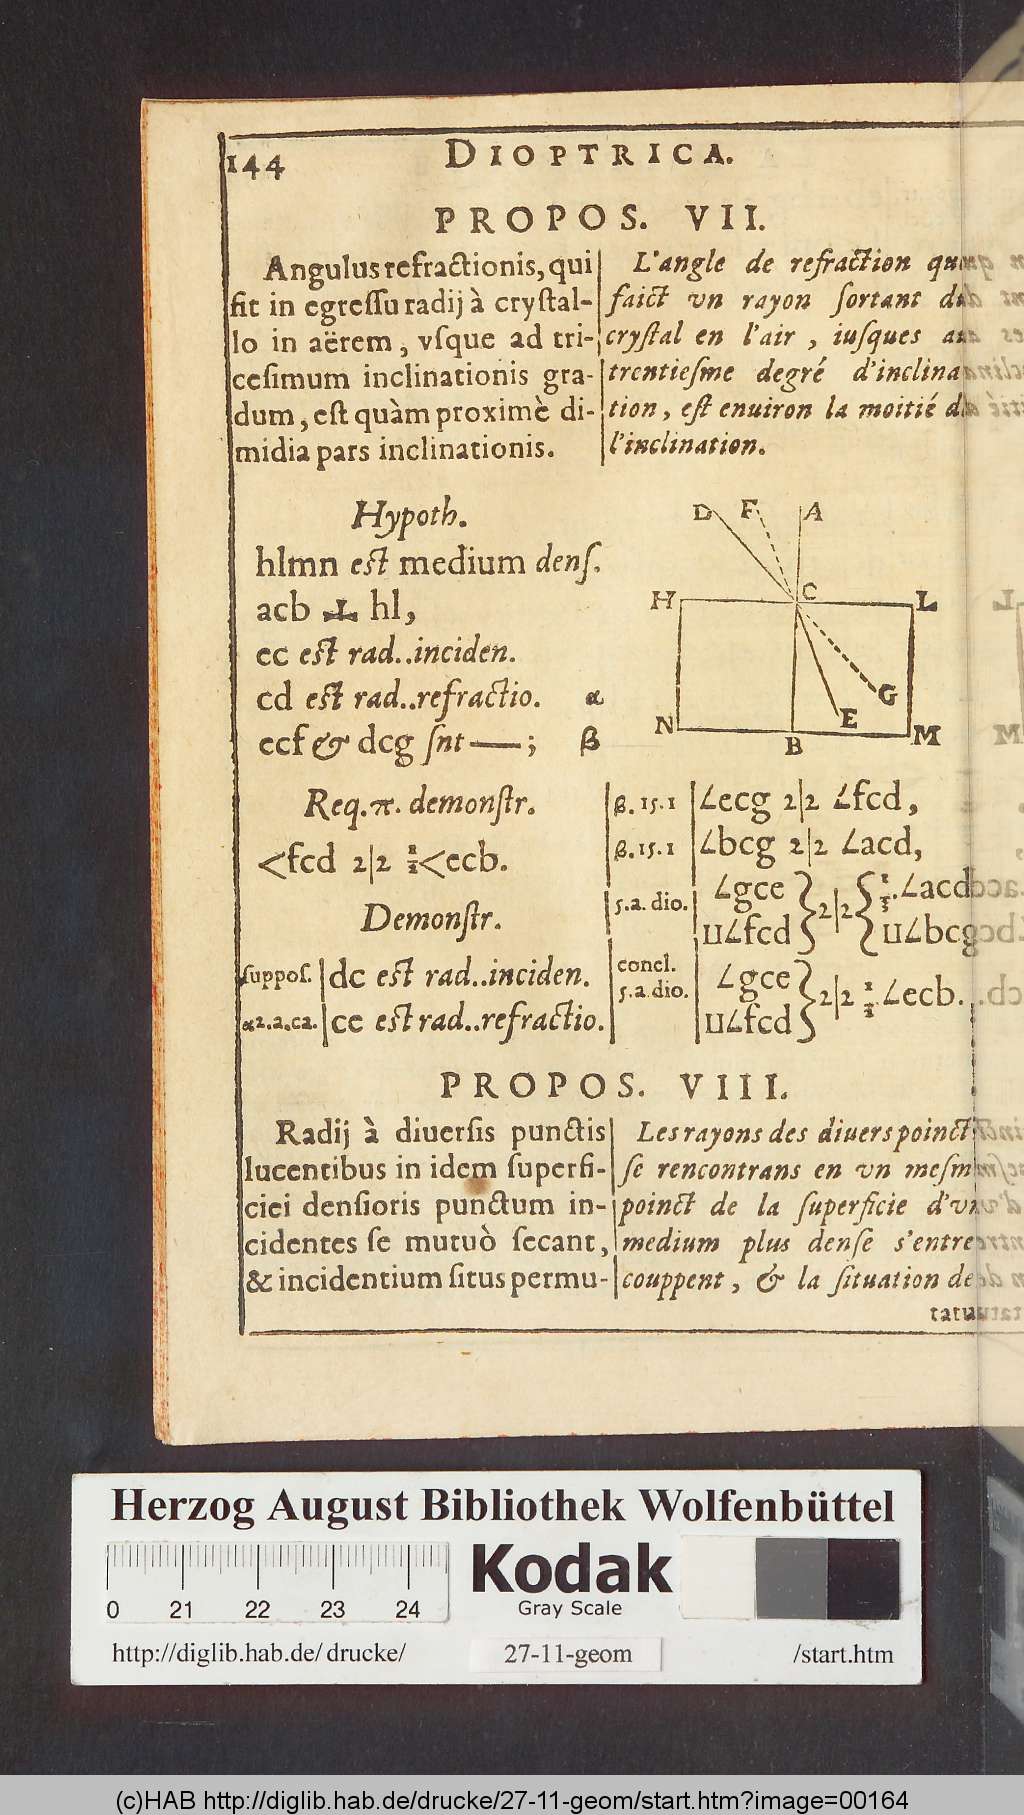 144
DIOPTRICA.
PROPOS. VII.
Angulus refractionis, qui
fit in egreſſu radij à cryſtal-
lo in aërem, vſque ad tri-
ceſimum inclinationis gra-
dum, eſt quàm proximè di-
midia pars inclinationis.
L'angle de refraction quan
faict vn rayon ſortant du
cryſtal en l'air, iuſques au
trentieſme degré d'inclina
tion, eſt enuiron la moitié de
l'inclination.
Hypoth.
hlmn eſt medium denſ.
acb ⊥ hl,
ec eſt rad..inciden.
cd eſt rad..refractio. α
ecf & dcg ſnt —; β
D F A
H C L
G
N E
B M
Req. π. demonſtr.
<fcd 2|2 ½<ecb.
Demonſtr.
ſuppoſ. | dc eſt rad..inciden.
α2.a.c2. | ce eſt rad..refractio.
β.15.1 | ∠ecg 2|2 ∠fcd,
β.15.1 | ∠bcg 2|2 ∠acd,
5.a.dio. | ∠gce } 2|2 { ⅓.∠acd
ц∠fcd } { ц∠bcg
concl. 5.a.dio. | ∠gce } 2|2 ½.∠ecb.
ц∠fcd }
PROPOS. VIII.
Radij à diuerſis punctis
lucentibus in idem ſuperfi-
ciei denſioris punctum in-
cidentes ſe mutuò ſecant,
& incidentium ſitus permu-
Les rayons des diuers poinct
ſe rencontrans en vn meſm
poinct de la ſuperficie d'vn
medium plus denſe s'entre
couppent, & la ſituation de
tatu
Herzog August Bibliothek Wolfenbüttel
0 21 22 23 24
Kodak
Gray Scale
http://diglib.hab.de/drucke/ 27-11-geom /start.htm
(c)HAB http://diglib.hab.de/drucke/27-11-geom/start.htm?image=00164